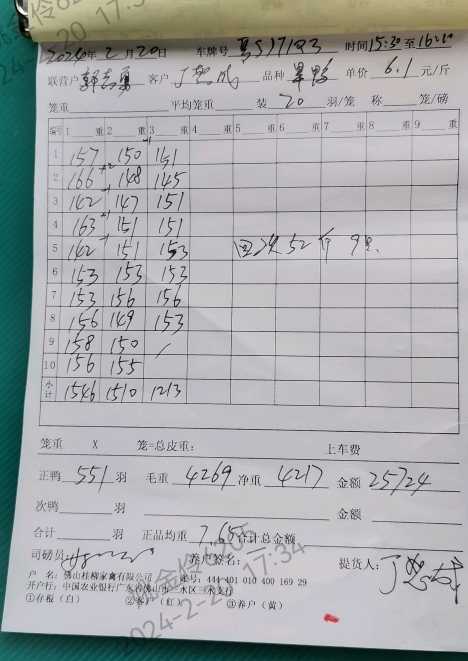 2024年2月20日 车牌号 时间15:30至16:10
联营户 客户 品种 单价 6.1 元/斤
笼重 平均笼重 装 20 羽/笼 称 笼/磅
编号 1 重 2 重 3 重 4 重 5 重 6 重 7 重 8 重 9 重
1 157 150 151
2 166 148 145
3 142 147 151
4 163 151 151
5 142 151 153 回次52斤 9只
6 153 153 153
7 153 156 156
8 156 149 153
9 158 150 /
10 156 155
小计 1546 1510 1213
笼重 X 笼=总皮重: 上车费
正鸭 551 羽 毛重 4269 净重 4217 金额 25724
次鸭 羽 金额
合计 羽 正品均重 7.65 合计总金额
司磅员: 养户签名: 提货人:
户 名: 佛山桂柳家禽有限公司 账号: 444 401 010 400 169 29
开户行: 中国农业银行广东省佛山市三水区三水支行
①存根（白） ②客户（红） ③养户（黄）
2024-2-20 17:34